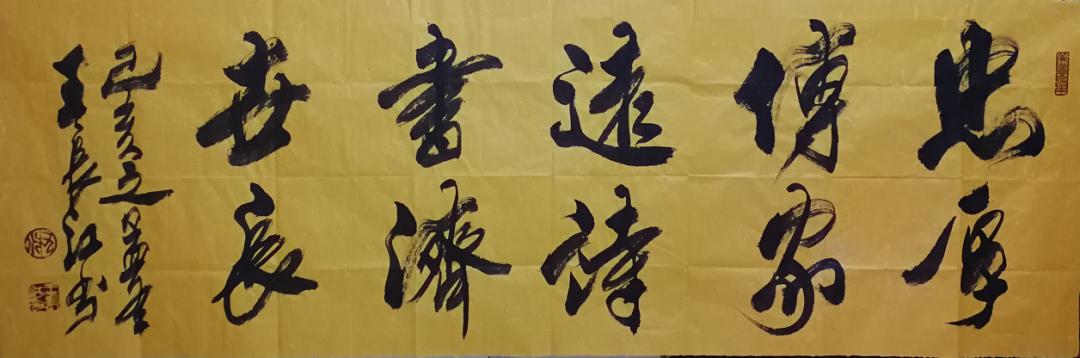 忠厚
傳家
遠詩
書濟
世長
己亥之
王長江书